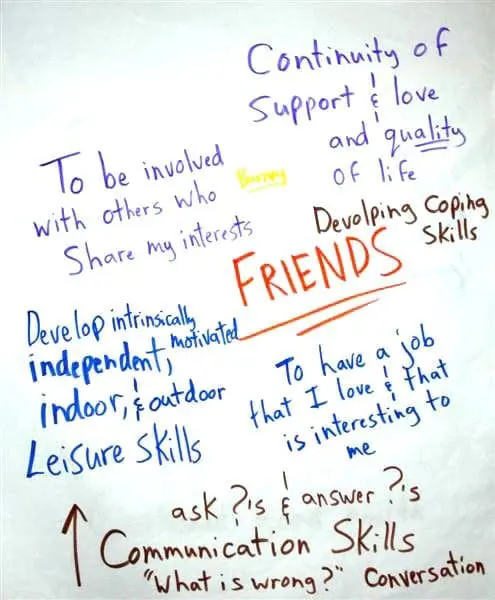 Continuity of
Support & love
and quality
of life
To be involved
with others who
Share my interests
Devolping Coping
Skills
FRIENDS
Develop intrinsically
motivated
independent,
indoor, & outdoor
Leisure Skills
To have a job
that I love & that
is interesting to
me
ask ?'s & answer ?'s
↑ Communication Skills
"What is wrong?" Conversation